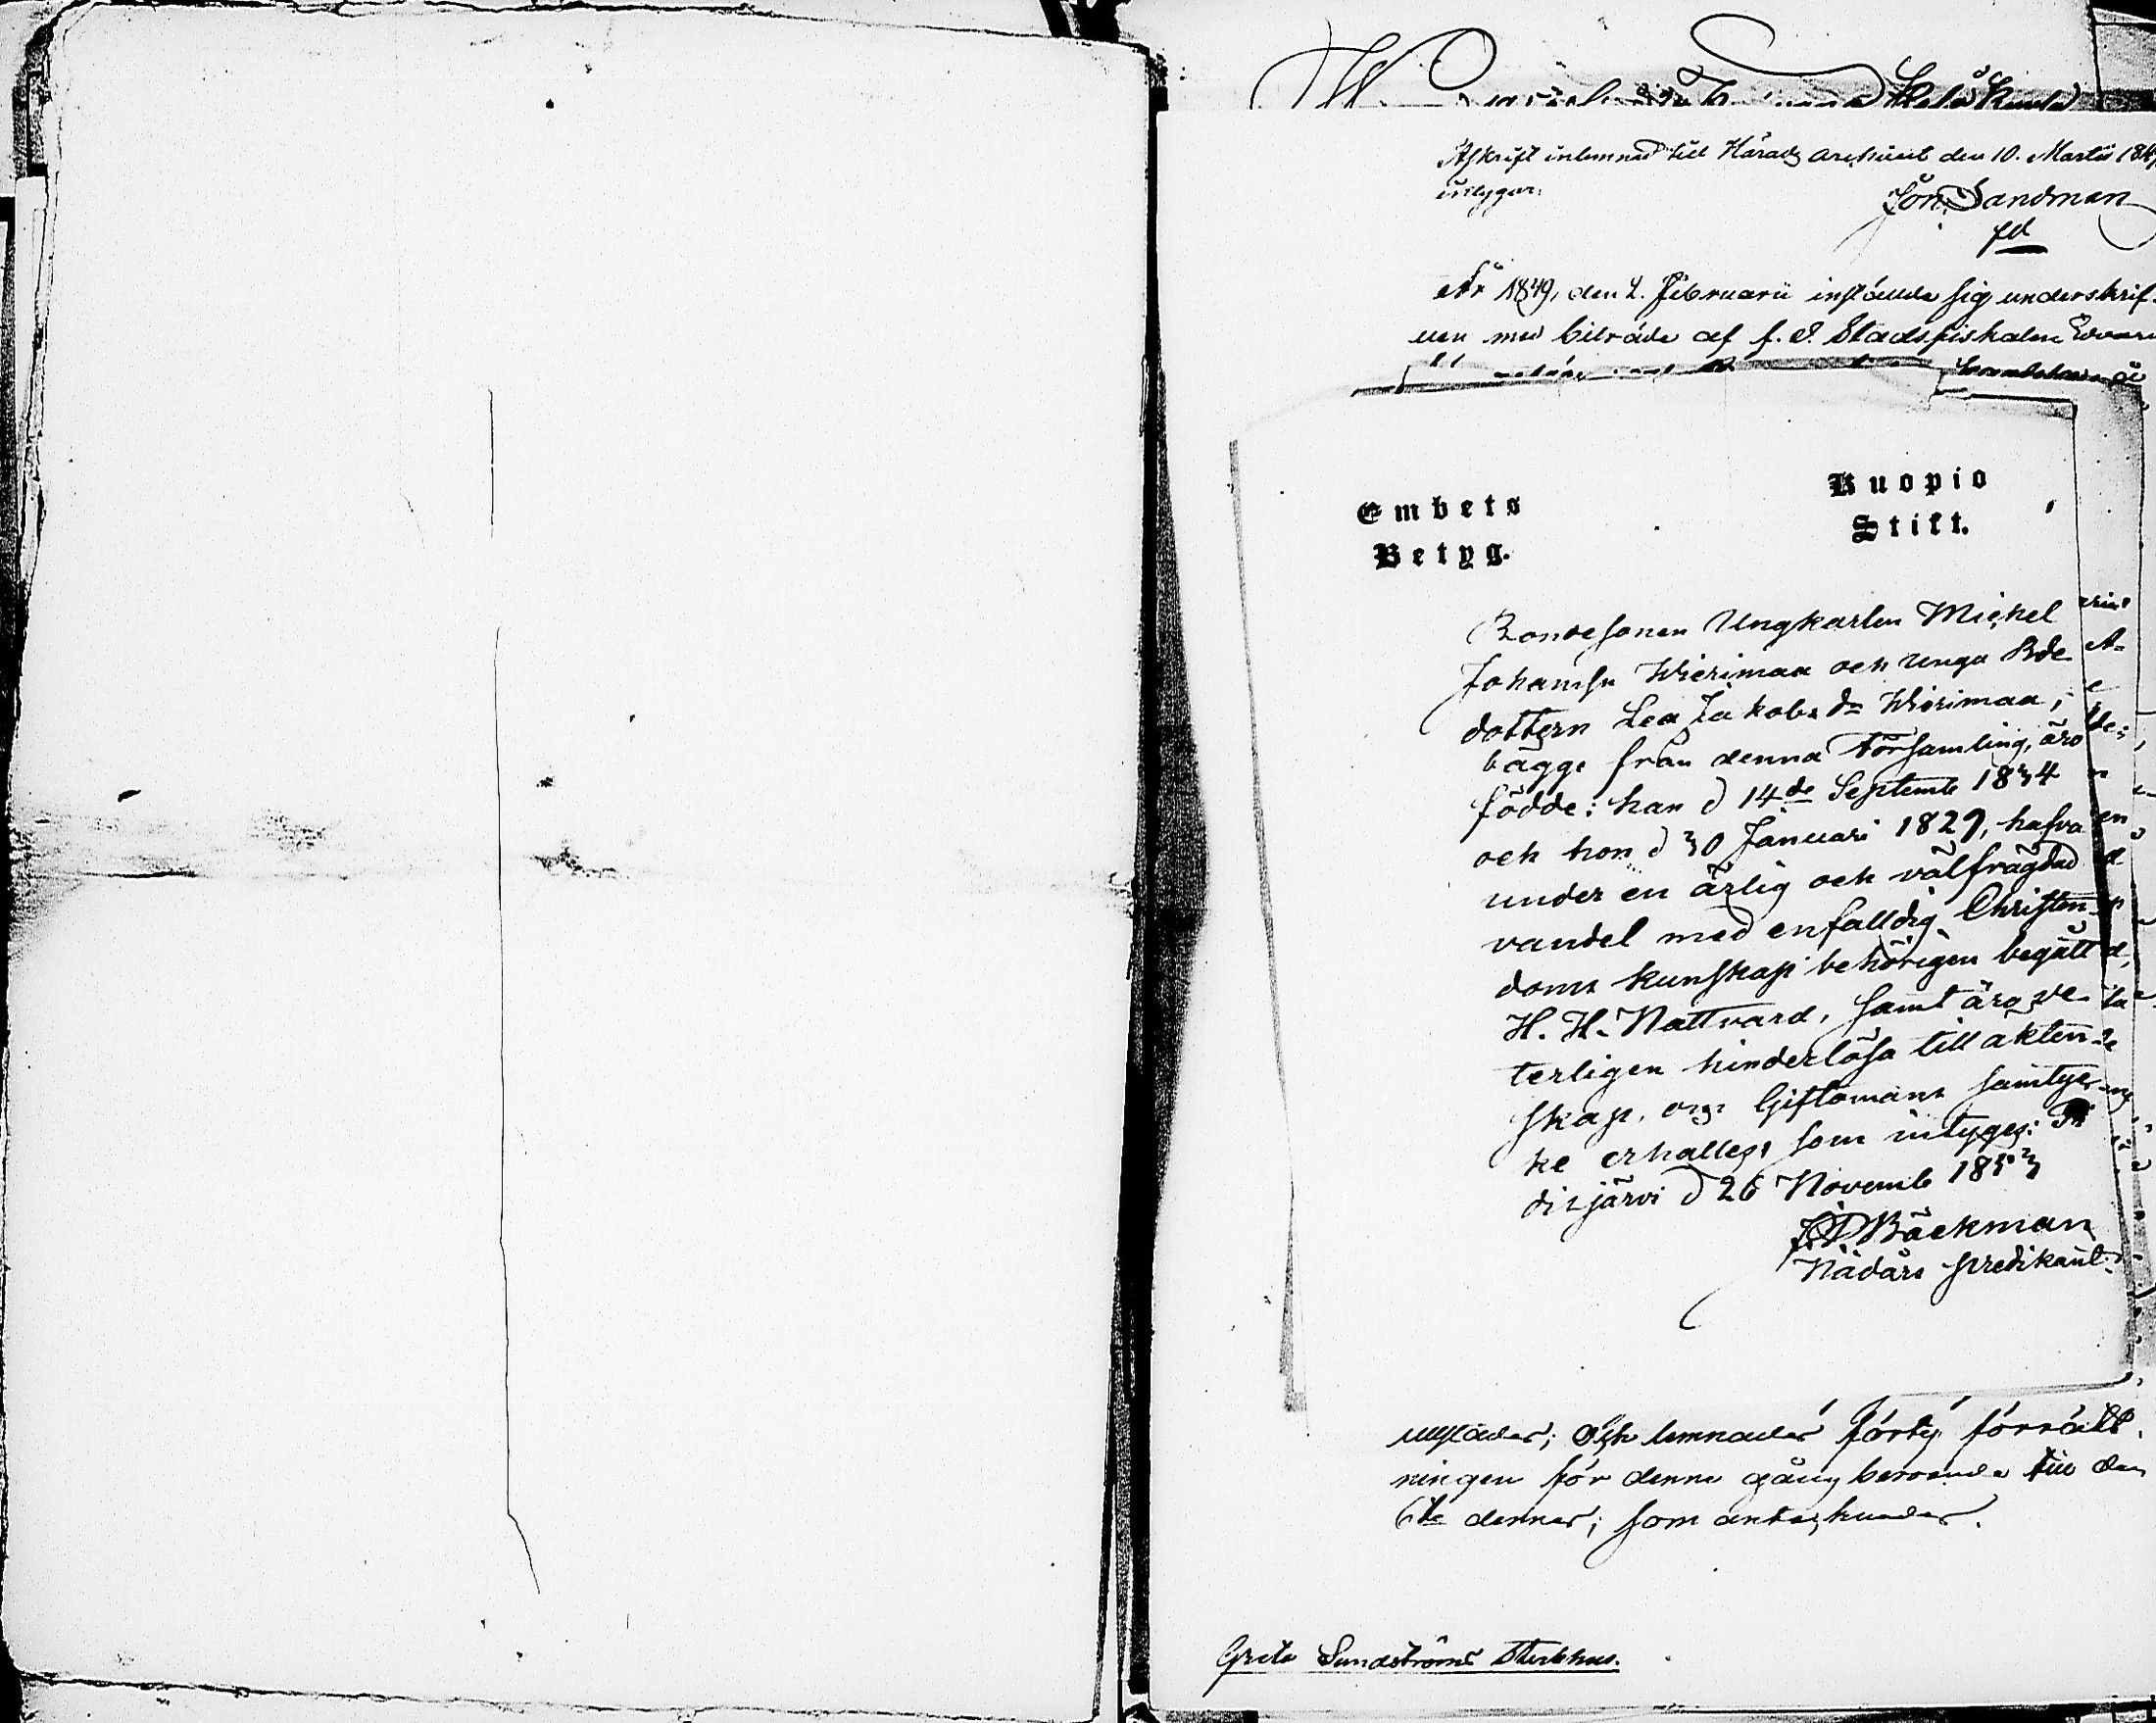 Afskrift inlemnad till Härads archivet den 10. Martii 1849
intygar:
Jon Sandman
fd
År 1849, den 2. Februarii instälde sig underskrif-
ven med biträde af f. d. Stadsfiskalen Edvard
Embets
Betyg.
Kuopio
Stift.
Bondesonen Ungkarlen Michel
Johansn Wierimaa och unga Bde
dottern Lea Jakobs dr Wierimaa,
bägge från denna Församling, äro
födde: han d 14de Septemb 1834
och hon d 30 Januari 1829, hafva
under en ärlig och välfrägdad
vandel med enfalldig Christen-
doms kunskap behörigen begått
H. H. Nattvard, samt äro ve-
terligen hinderlösa till äkten-
skap, om Giftomans samtyc-
ke erhålles, som intygas: Pi
disjärvi d 26 Novemb 1853
Bäckman
Nådårs predikant.
och lemnades förty förrätt-
ningen för denna gång beroende till den
6te dennes; som antecknades.
Greta Sundströms Sterbhus.